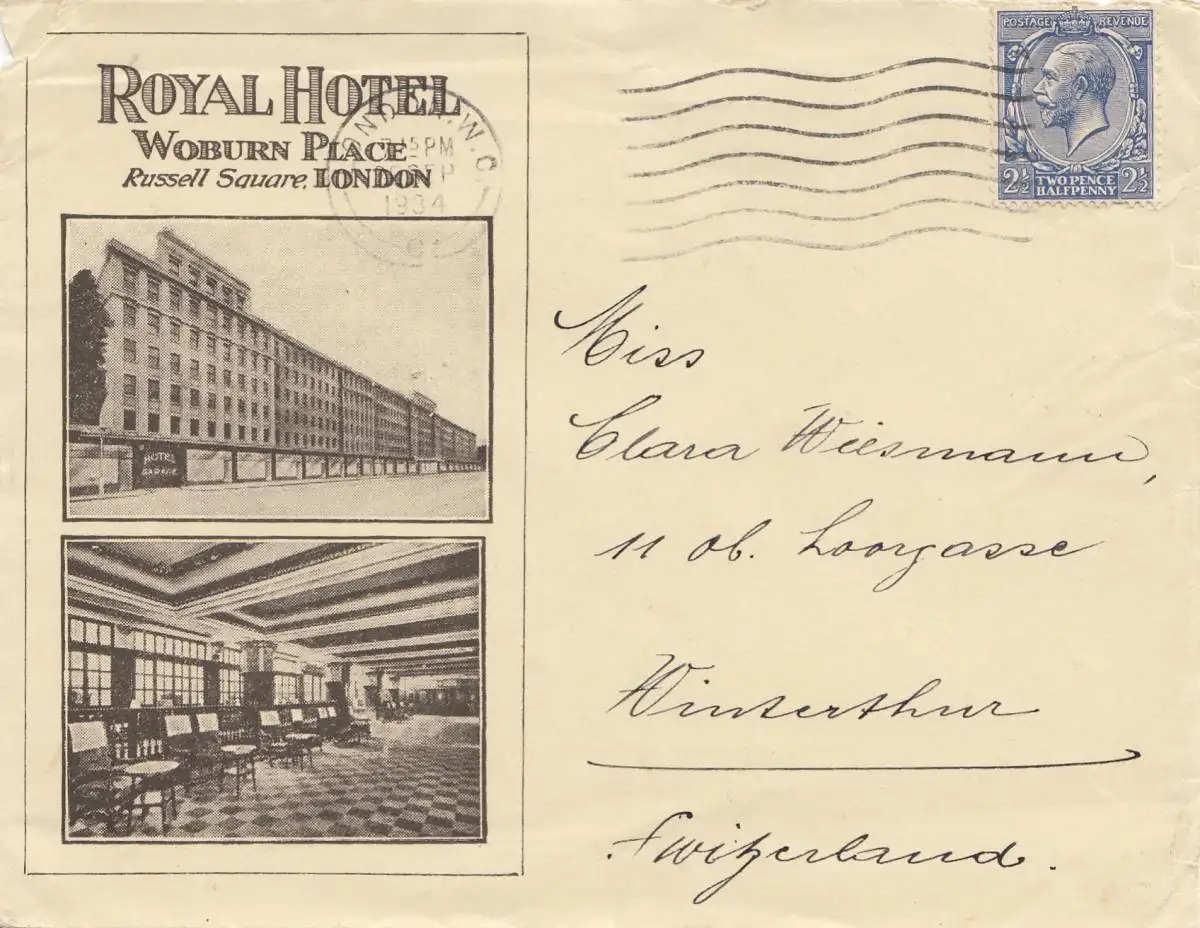 ROYAL HOTEL
WOBURN PLACE
Russell Square, LONDON
LONDON. W.C.
7.15 PM
SEP
1934
POSTAGE REVENUE
2½ TWO PENCE 2½
HALFPENNY
HOTEL
GARAGE
Miss
Clara Wiesmann,
11 ob. Loorgasse
Winterthur
Switzerland.